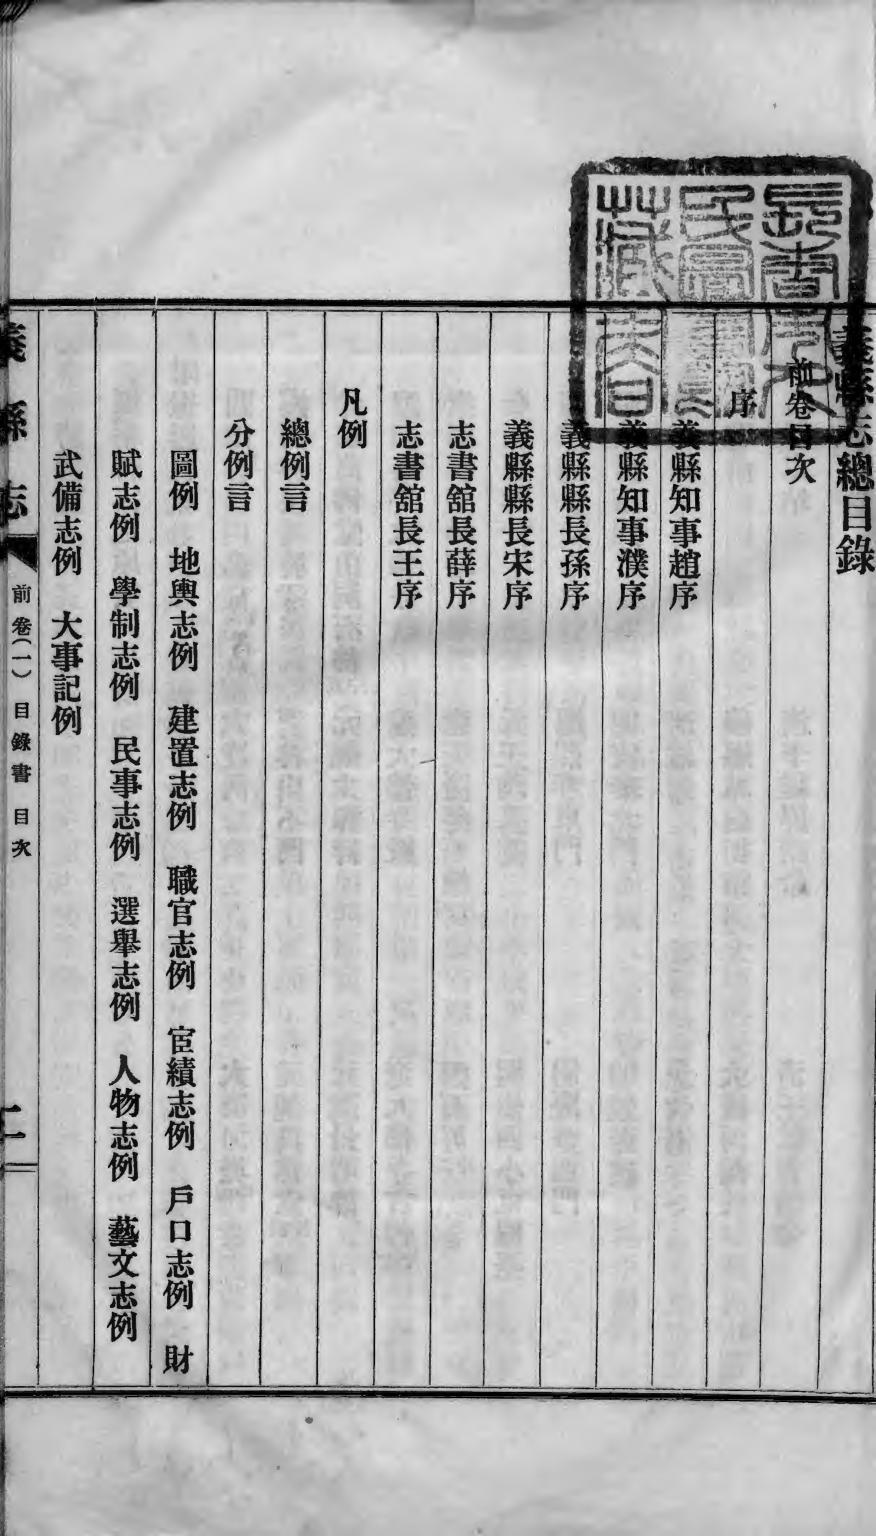 義縣志總目錄
前卷目次
序
義縣知事趙序
義縣知事濮序
義縣縣長孫序
義縣縣長宋序
志書舘長薛序
志書舘長王序
凡例
總例言
分例言
圖例 地輿志例 建置志例 職官志例 宦績志例 戶口志例 財
賦志例 學制志例 民事志例 選舉志例 人物志例 藝文志例
武備志例 大事記例
義縣志 前卷(一) 目錄書 目次 二